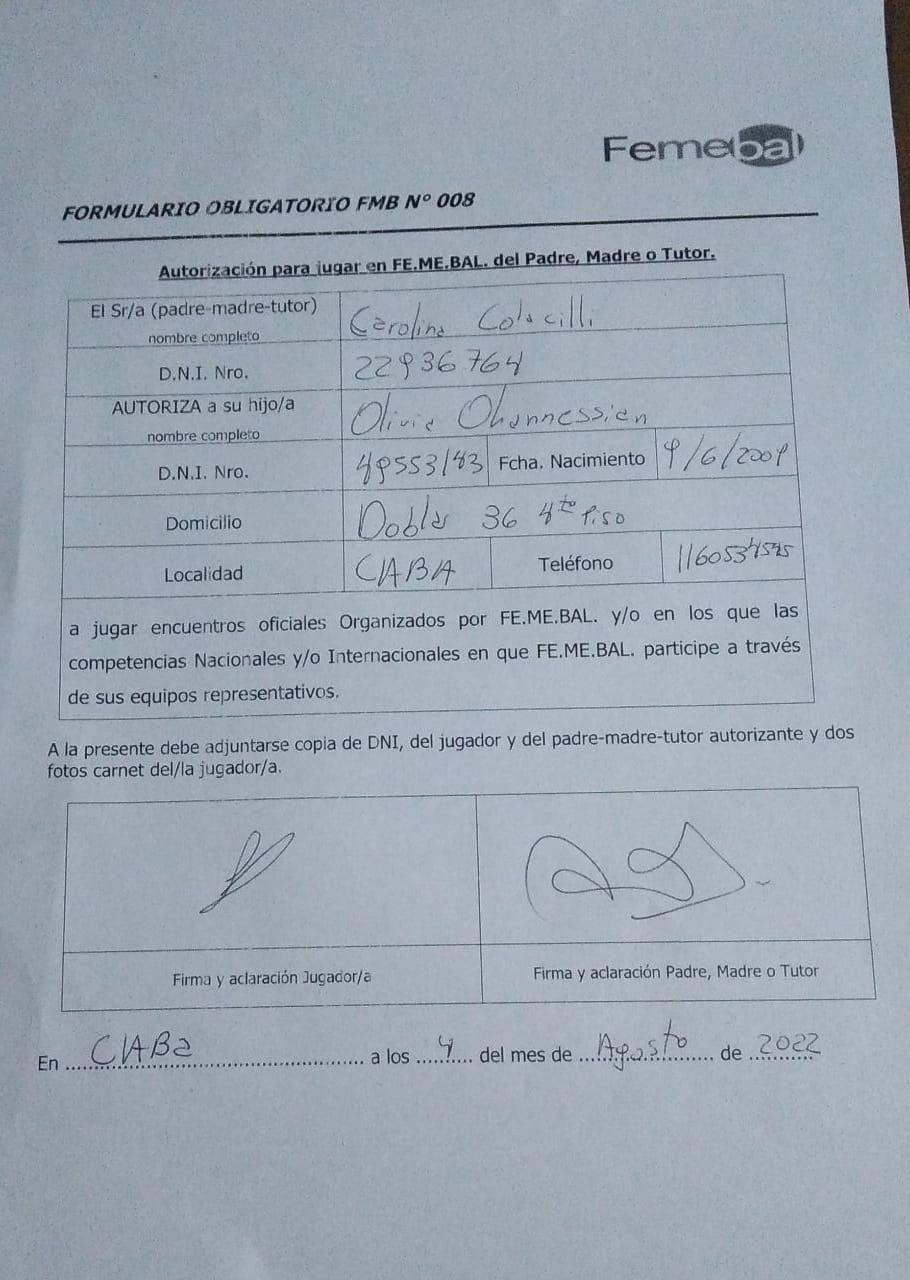 Femebal
FORMULARIO OBLIGATORIO FMB N° 008
Autorización para jugar en FE.ME.BAL. del Padre, Madre o Tutor.
El Sr/a (padre-madre-tutor) nombre completo Carolina Colacilli
D.N.I. Nro. 22936764
AUTORIZA a su hijo/a nombre completo Olivia Ohannessian
D.N.I. Nro. 49553183 Fcha. Nacimiento 9/6/2009
Domicilio Doblas 36 4to Piso
Localidad CABA Teléfono
a jugar encuentros oficiales Organizados por FE.ME.BAL. y/o en los que las
competencias Nacionales y/o Internacionales en que FE.ME.BAL. participe a través
de sus equipos representativos.
A la presente debe adjuntarse copia de DNI, del jugador y del padre-madre-tutor autorizante y dos
fotos carnet del/la jugador/a.
Firma y aclaración Jugador/a Firma y aclaración Padre, Madre o Tutor
En CABa a los 4 del mes de Agosto de 2022